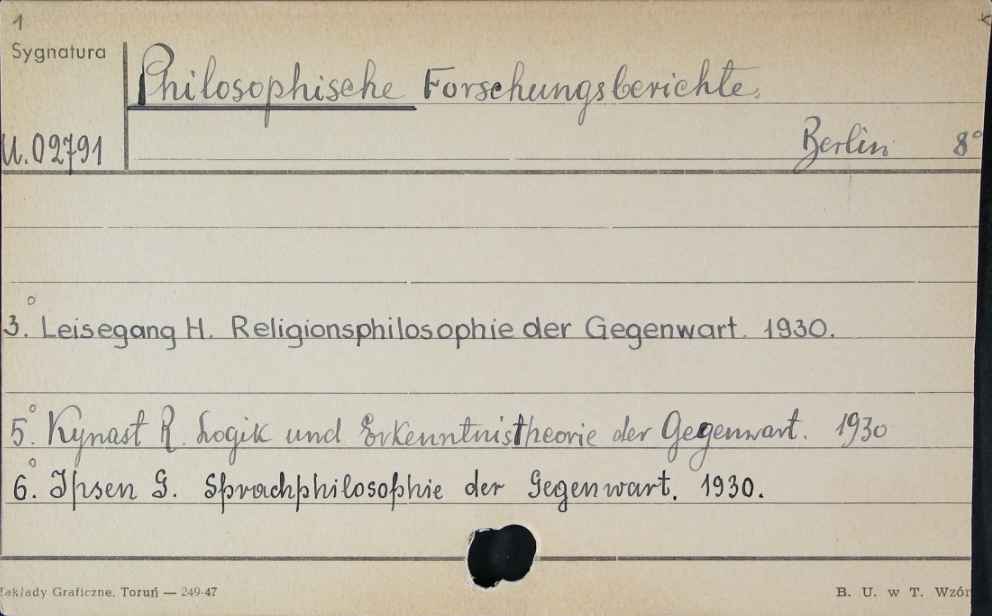 1
Sygnatura
Philosophische Forschungsberichte.
U.02791
Berlin 8°
3.° Leisegang H. Religionsphilosophie der Gegenwart. 1930.
5.° Kynast R. Logik und Erkenntnistheorie der Gegenwart. 1930
6.° Ipsen G. Sprachphilosophie der Gegenwart. 1930.
Zakłady Graficzne. Toruń — 249-47
B. U. w T. Wzór